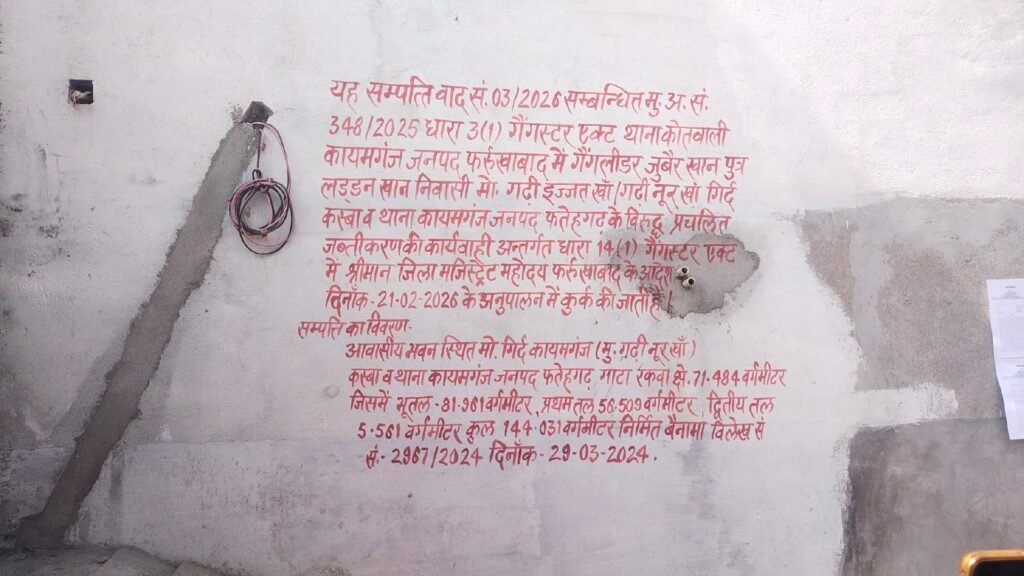 यह सम्पत्ति वाद सं. 03/2026 सम्बन्धित मु. अ. सं.
348/2025 धारा 3(1) गैंगस्टर एक्ट थाना कोतवाली
कायमगंज जनपद फर्रुखाबाद में गैंगलीडर जुबैर खान पुत्र
लड्डन खान निवासी मो. गढी इज्जत खाँ/गढी नूर खाँ गिर्द
कस्बा व थाना कायमगंज जनपद फतेहगढ के विरुद्ध प्रचलित
जब्तीकरण की कार्यवाही अन्तर्गत धारा 14(1) गैंगस्टर एक्ट
में श्रीमान जिला मजिस्ट्रेट महोदय फर्रुखाबाद के आदेश
दिनाँक-21-02-2026 के अनुपालन में कुर्क की जाती है।
सम्पत्ति का विवरण-
आवासीय भवन स्थित मो. गिर्द कायमगंज (मु. गढी नूर खाँ)
कस्बा व थाना कायमगंज जनपद फतेहगढ गाटा रकवा क्षे. 71.484 वर्गमीटर
जिसमें भूतल-81.961 वर्गमीटर, प्रथम तल 56.509 वर्गमीटर, द्वितीय तल
5.561 वर्गमीटर कुल 144.031 वर्गमीटर निर्मित बैनामा विलेख सं
सं.- 2967/2024 दिनाँक-29-03-2024.